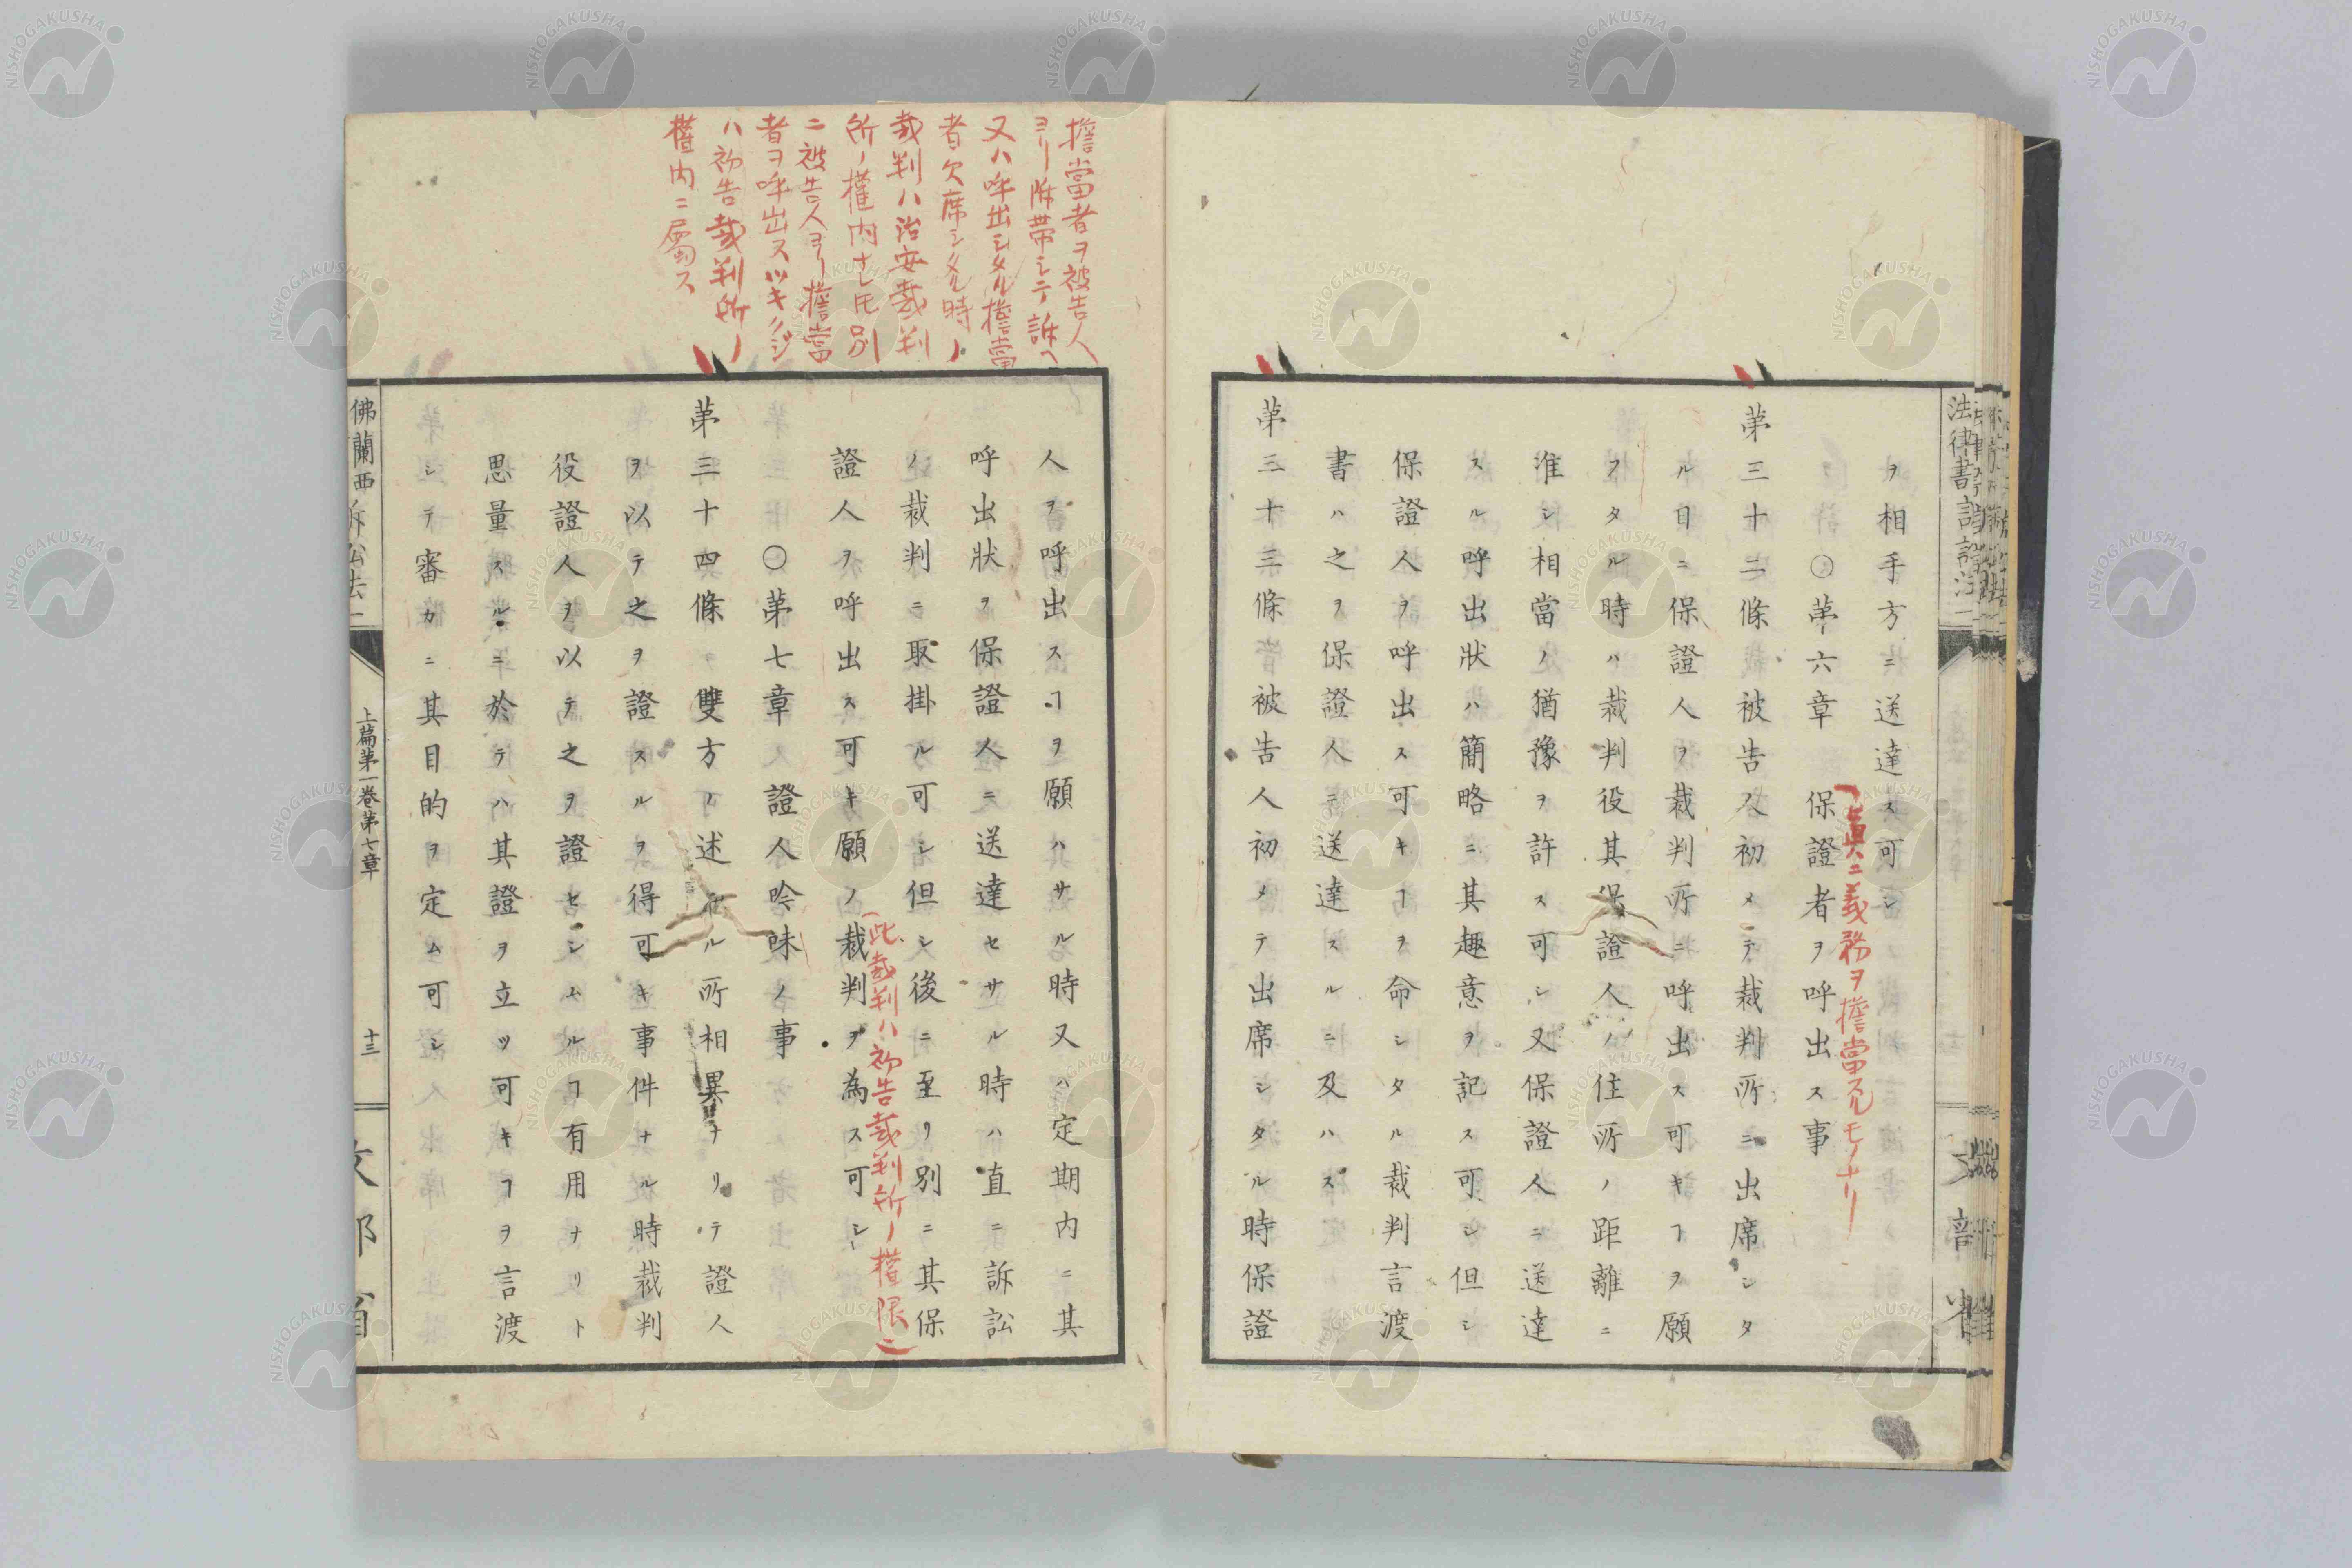 ヲ相手方ニ送達ス可シ
〇第六章 保證者ヲ呼出ス事
眞ニ義務ヲ擔當スルモノナリ
第三十二條 被告人初メテ裁判所ニ出席シタ
ル日ニ保證人ヲ裁判所ニ呼出ス可キヿヲ願
フタル時ハ裁判役其保證人ノ住所ノ距離ニ
准シ相當ノ猶豫ヲ許ス可シ又保證人ニ送達
スル呼出狀ハ簡略ニ其趣意ヲ記ス可シ但シ
保證人ヲ呼出ス可キヿヲ命シタル裁判言渡
書ハ之ヲ保證人ニ送達スルニ及ハス
第三十三條 被告人初メテ出席シタル時保證
擔當者ヲ被告人
ヨリ附帶シテ訴ヘ
又ハ呼出シタル擔當
者欠席シタル時ノ
裁判ハ治安裁判
所ノ權内ナレ𪜈別
ニ被告人ヨリ擔當
者ヲ呼出ス
ハ初告裁判所ノ
權内ニ屬ス
人ヲ呼出スヿヲ願ハサル時又ハ定期内ニ其
呼出狀ヲ保證人ニ送達セサル時ハ直ニ訴訟
ノ裁判ニ取掛ル可シ但シ後ニ至リ別ニ其保
證人ヲ呼出ス可キ願ノ裁判ヲ為ス可シ
(此裁判ハ初告裁判所ノ權限ニ)
〇第七章 證人吟味ノ事
第三十四條 雙方ノ述フル所相異ナリテ證人
ヲ以テ之ヲ證スルヲ得可キ事件ナル時裁判
役證人ヲ以テ之ヲ證セシムルヿ有用ナリト
思量スルニ於テハ其證ヲ立ツ可キヿヲ言渡
シテ審カニ其目的ヲ定ム可シ
佛蘭西訴訟法一
上篇第一卷第七章
十三
文部省